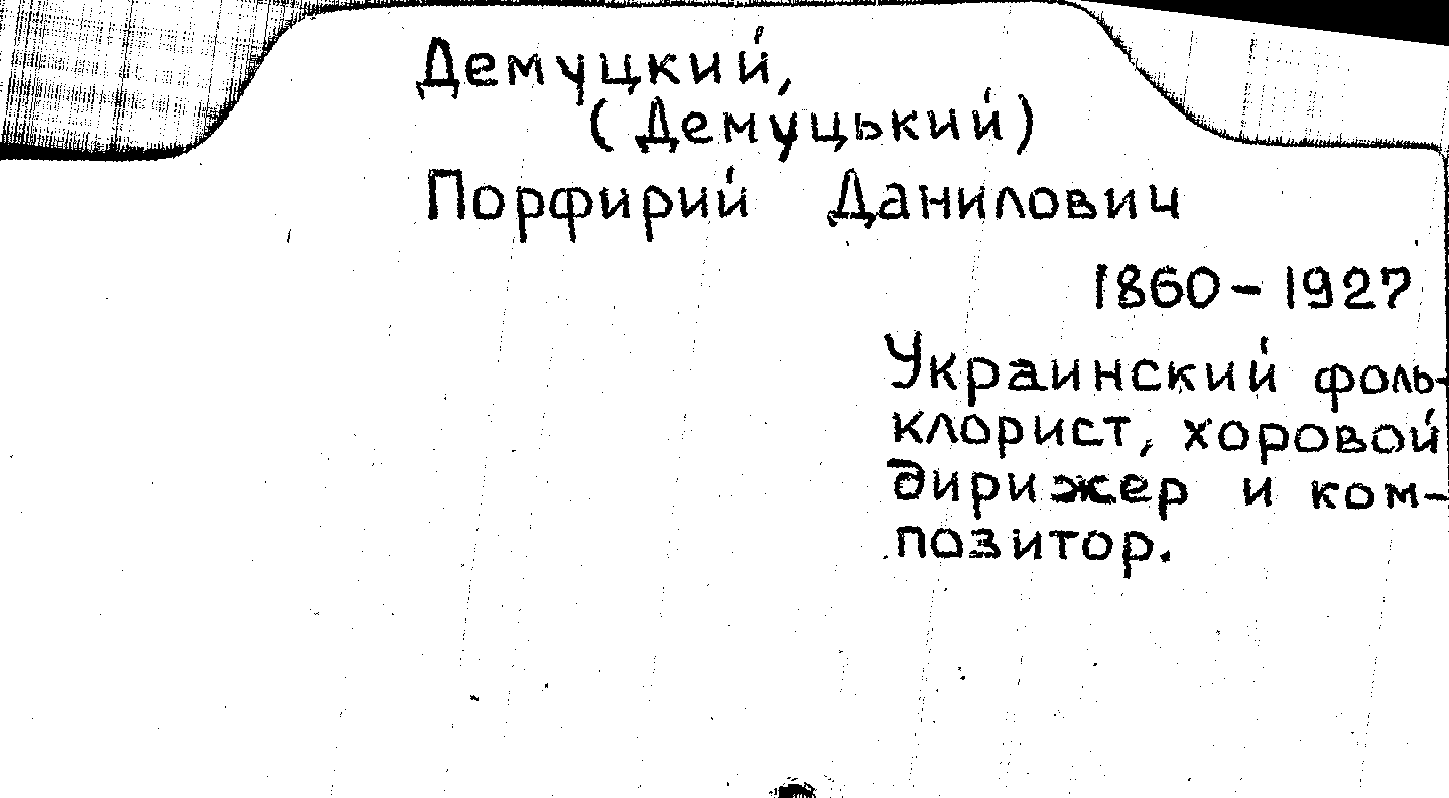 Демуцкий,
(Демуцький)
Порфирий Данилович
1860-1927
Украинский фоль-
клорист, хоровой
дирижер и ком-
позитор.